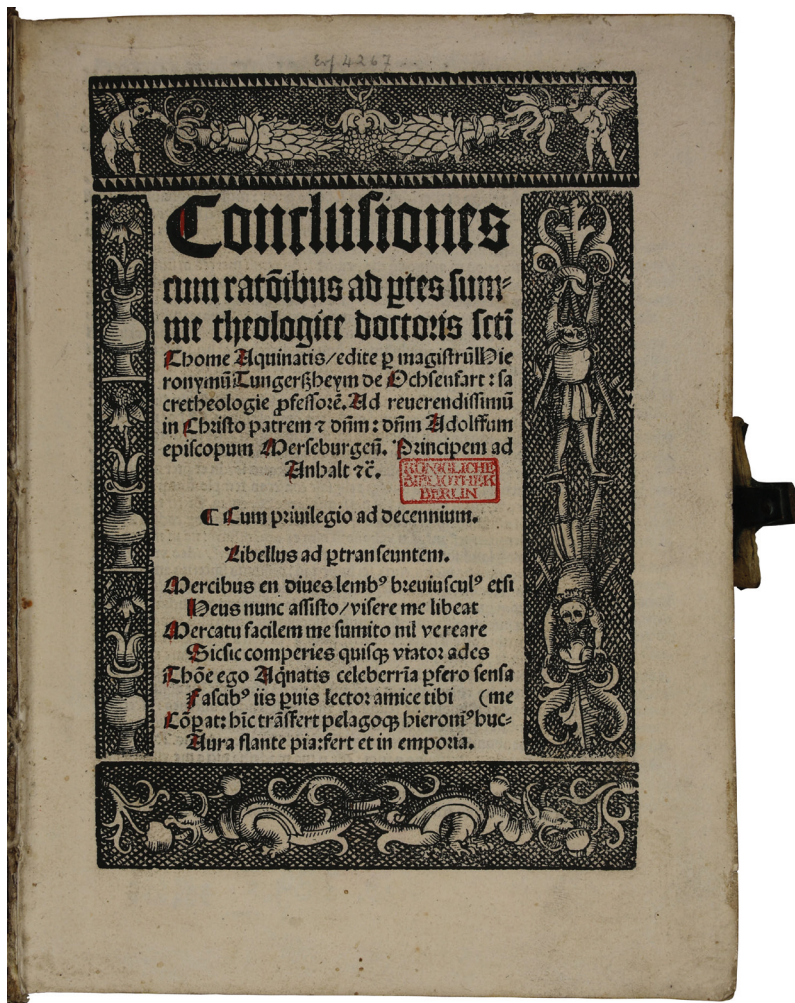 Erf. 4267
Conclusiones
cum ratōibus ad ꝑtes sum⸗
me theologice doctoris scti
Thome Aquinatis/edite ꝑ magistrū Hie
ronymū Tungerßheym de Ochsenfart: sa
cretheologie ꝓfessorē. Ad reuerendissimū
in Christo patrem ⁊ dn̄m: dn̄m Adolffum
episcopum Merseburgeñ. Principem ad
Anhalt ⁊c̄.
KÖNIGLICHE
BIBLIOTHEK
BERLIN
¶ Cum priuilegio ad decennium.
Libellus ad ꝑtranseuntem.
Mercibus en diues lembꝰ breuiusculꝰ etsi
Heus nunc assisto/visere me libeat
Mercatu facilem me sumito nil vereare
Sicsic comperies quisqꝫ viator ades
Thōe ego Aq̇natis celeberrīa ꝓfero sensa
Fascibꝰ iis ꝑuis lector amice tibi (me
Cōpat: hīc trāsfert pelagoqꝫ hieronīꝰ huc⸗
Aura flante pia: fert et in emporia.